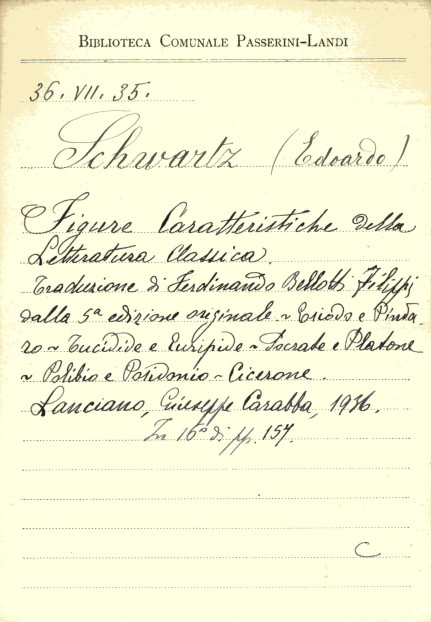 BIBLIOTECA COMUNALE PASSERINI-LANDI
36. VII. 35.
Schwartz (Edoardo)
Figure Caratteristiche della
Letteratura Classica.
Traduzione di Ferdinando Bellotti Filippi
dalla 5ª edizione originale ~ Esiodo e Pinda
ro ~ Tucidide e Euripide ~ Socrate e Platone
~ Polibio e Posidonio - Cicerone.
Lanciano, Giuseppe Carabba, 1936.
In 16° di pp. 157.
C